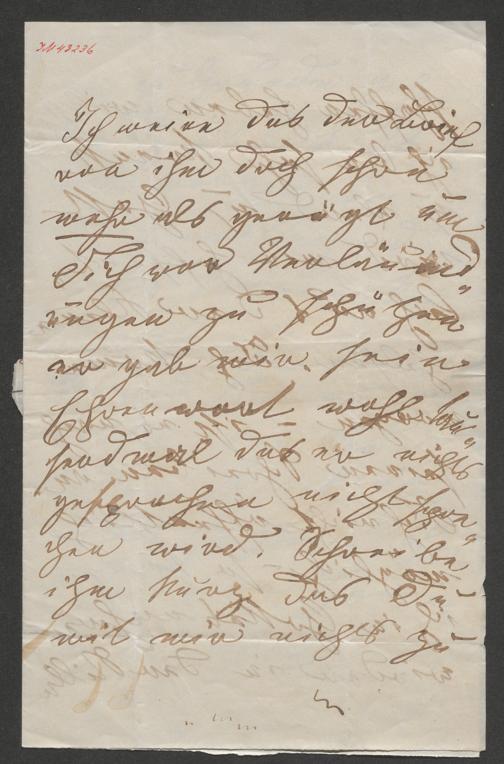 IN 43236
Ich meine das der Brief
von ihm doch schon
mehr als genügt um
Dich vor Verläumd„
ungen zu schützen
er gab mir sein
Ehrenwort wohl tau„
sendmal das er nichts
gesprochen nicht spre„
chen wird. Schreibe
ihm kurz das Du
mit mir nichts zu